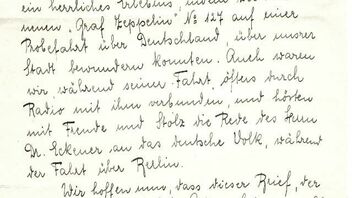 ein herrliches Erlebnis, indem wir
neuen „Graf Zeppelin" No 127 auf einer
Probefahrt über Deutschland, über unsrer
Stadt bewundern konnten. Auch waren
wir, während seiner Fahrt, öfters durch
Radio mit ihm verbunden, und hörten
mit Freude und Stolz die Rede des Herrn
Dr. Eckener an das deutsche Volk, während
der Fahrt über Berlin.
Wir hoffen nun, dass dieser Brief, der